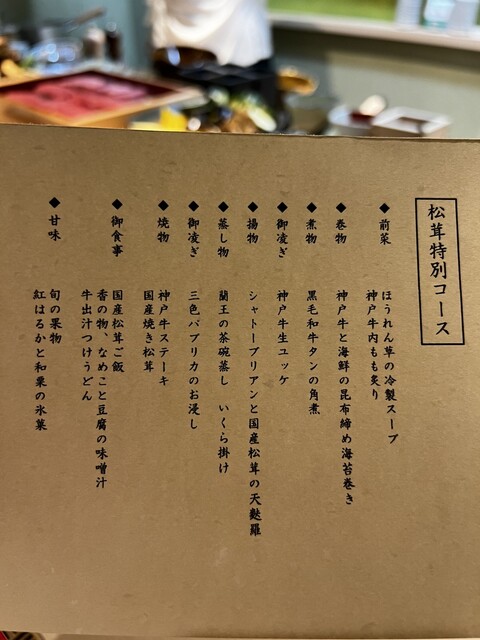 松茸特別コース
◆前菜
ほうれん草の冷製スープ
神戸牛内もも炙り
◆巻物
神戸牛と海鮮の昆布締め海苔巻き
◆煮物
黒毛和牛タンの角煮
◆御凌ぎ
神戸牛生ユッケ
◆揚物
シャトーブリアンと国産松茸の天麩羅
◆蒸し物
蘭王の茶碗蒸し いくら掛け
◆御凌ぎ
三色パプリカのお浸し
◆焼物
神戸牛ステーキ
国産焼き松茸
◆御食事
国産松茸ご飯
香の物、なめこと豆腐の味噌汁
牛出汁つけうどん
◆甘味
旬の果物
紅はるかと和栗の氷菓